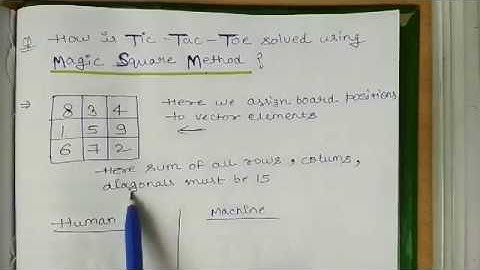 Q) How is Tic-Tac-Toe solved using
Magic Square Method ?
⇒
8 3 4
1 5 9
6 7 2
Here we assign board positions
to vector elements
Here sum of all rows, colums,
diagonals must be 15
Human
Machine